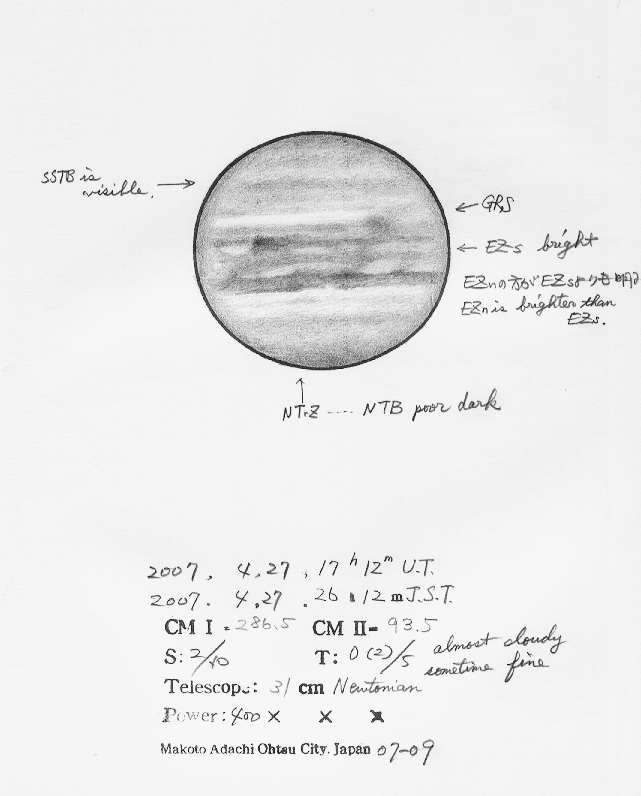 SSTB is
visible.
GRS
EZs bright
EZnの方がEZsよりも明
EZn is brighter than
EZs.
NTrZ ---- NTB poor dark
2007. 4.27, 17h 12m U.T.
2007. 4.27. 26 12 m J.S.T.
CM I - 286.5 CM II- 93.5
S: 2/10 T: 0 (2)/5 almost cloudy
sometime fine
Telescope: 31 cm Newtonian
Power: 400 × × ×
Makoto Adachi Ohtsu City. Japan 07-09